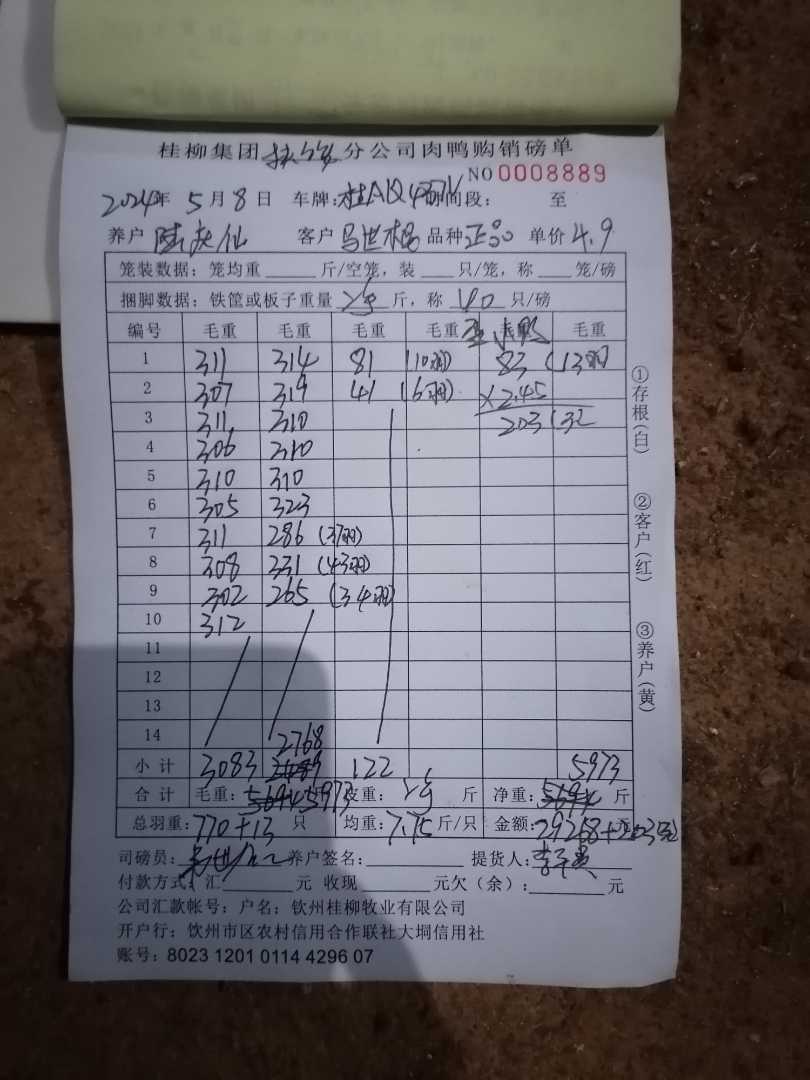 桂柳集团 分公司肉鸭购销磅单
NO 0008889
2024年 5月8日 车牌:桂A 时间段: 至
养户 陆 仙 客户 马世 品种 正品 单价 4.9
笼装数据:笼均重 斤/空笼,装 只/笼,称 笼/磅
捆脚数据:铁筐或板子重量 斤,称 40 只/磅
编号 毛重 毛重 毛重 毛重 毛重 毛重
1 311 314 81 (10羽) 83 (13羽
2 307 319 41 (6羽) ×2.45
3 311 310 203
4 306 310
5 310 310
6 305 323
7 311 286 (37羽)
8 308 331 (43羽)
9 302 265 (34羽)
10 312
11
12
13
14 2768
小计 3083 122 5973
合计 毛重: 5973 皮重: 斤 净重: 斤
总羽重: 770+13 只 均重: 7.75 斤/只 金额: 29268+
司磅员: 养户签名: 提货人:
付款方式:汇 元 收现 元欠(余): 元
公司汇款帐号:户名:钦州桂柳牧业有限公司
开户行:钦州市区农村信用合作联社大垌信用社
账号:8023 1201 0114 4296 07
①存根(白)
②客户(红)
③养户(黄)